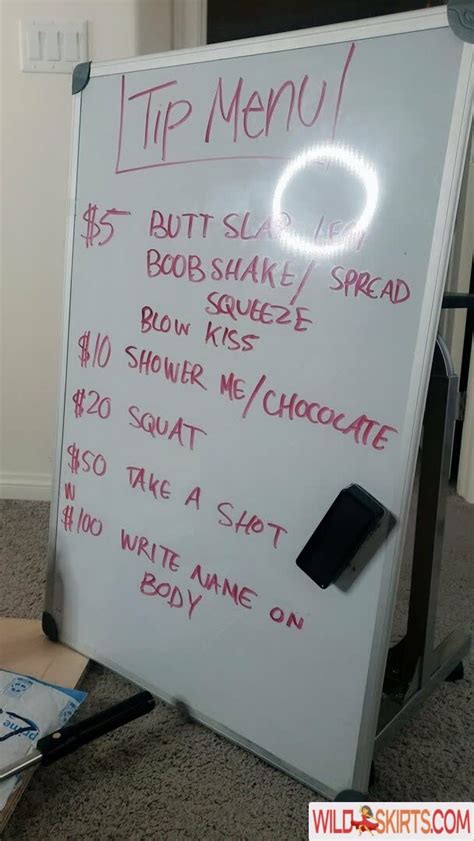 Tip Menu
$5 BUTT SLAP
BOOB SHAKE/ SPREAD
SQUEEZE
BLOW KISS
$10 SHOWER ME/CHOCOLATE
$20 SQUAT
$50 TAKE A SHOT
$100 WRITE NAME ON
BODY
prime
WILD SKIRTS.COM